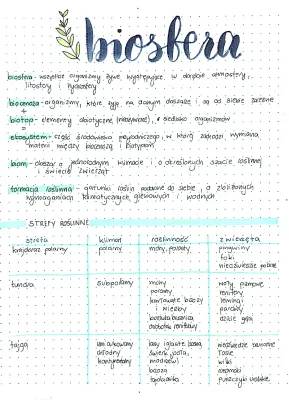 biosfera
biosfera - wszystkie organizmy żywe, występujące w obrębie atmosfery,
litosfery i hydrosfery
biocenoza - organizmy, które żyją na danym obszarze i są od siebie zależne
+
biotop - elementy abiotyczne (nieożywione), siedlisko organizmów
=
ekosystem - część środowiska przyrodniczego, w którą zachodzi wymiana
materii między biocenozą i biotopem
biom - obszar o jednorodnym klimacie i o określonych szacie roślinnej
i świecie zwierząt
formacja roślinna - gatunki roślin podobne do siebie, o zbliżonych
wymaganiach klimatycznych glebowych i wodnych
STREFY ROŚLINNE
strefa klimat roślinność zwierzęta
krajobraz polarny polarny mchy, porosty pingwiny
foki
niedźwiedzie polarne
tundra subpolarny mchy woły piżmowe
porosty renifery
karłowate brzozy lemingi
i wierzby pardwy
dzikie gęsi
tajga umiarkowany lasy iglaste: sosna, niedźwiedzie brunatne
chłodny świerk, jodła, łosie
kontynentalny modrzew wilki
brzoza